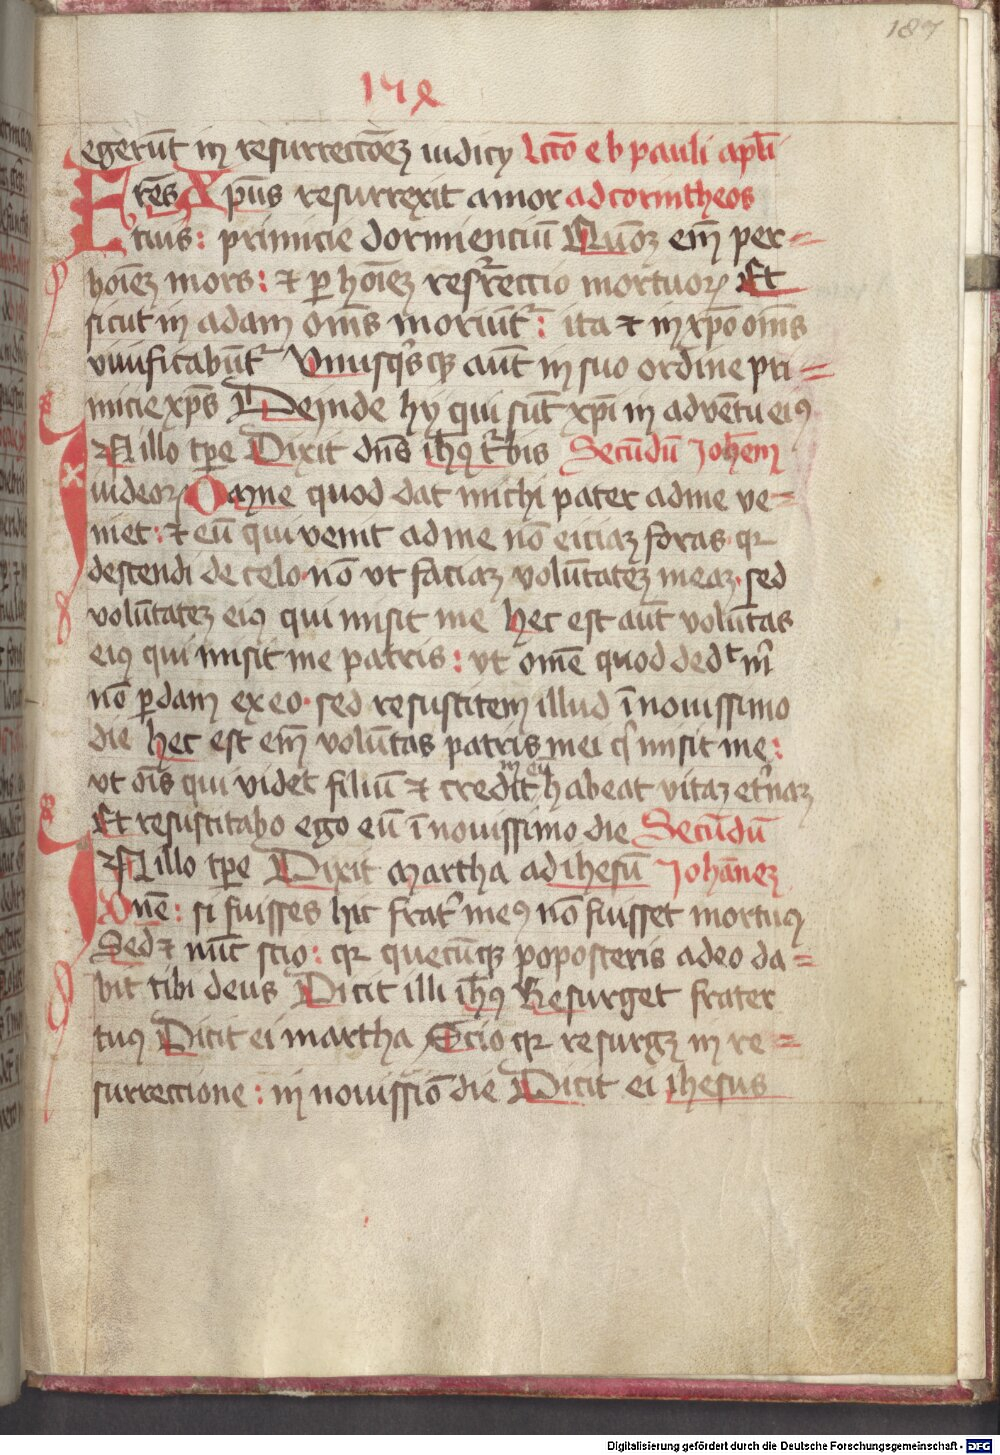 187
egerūt in resurrectōez iudicy Lcco e b pauli apl̄i
Fres Xpūs resurrexit a mor ad corintheos
tuis: primicie dormienciū Quōz em̄ per=
hoīez mors: et p hoīez resr̄eccio mortuoꝝ Et
sicut in adam om̄s moriūtʳ: ita et in xp̄o om̄s
viuificabūtʳ Vnusqͥsqꝫ aūt in suo ordine pri=
micie xp̄s Deinde hy qui sūt xp̄i in advētu eiꝯ
In illo tp̄e Dixit dn̄s ih̄ꝯ tʳbis Secūdū Joh̄em
iudeoꝝ Omne quod dat michi pater ad me ve=
niet: et eū qui venit ad me nō eiciaz foras qꝛ
descendi de celo nō vt faciaz volūtatez meaz sed
volūtatez eiꝯ qui misit me hec est aūt volūtas
eiꝯ qui misit me patris: vt om̄e quod dedᵗ m̄
nō ꝑdam ex eo sed resuscitem illud ī nouissimo
die hec est em̄ volūtas patris mei qͥ misit me:
in eū
vt oīs qui videt filiū et credit habeat vitaz etʳnaz
Et resuscitabo ego eū ī nouissimo die Secūdū
In illo tp̄e Dixit martha ad ihesū Johānez
Dn̄e: si fuisses hic fratʳ meꝯ nō fuisset mortuꝯ
Sed et nūc scio: qꝛ quecūqꝫ poposceris a deo da=
bit tibi deus Dicit illi ih̄ꝯ Resurget frater
tuꝯ Dicit ei martha Scio qꝛ resurgꝫ in re=
surreccione: in nouissīo die Dicit ei ihesus
Digitalisierung gefördert durch die Deutsche Forschungsgemeinschaft - DFG